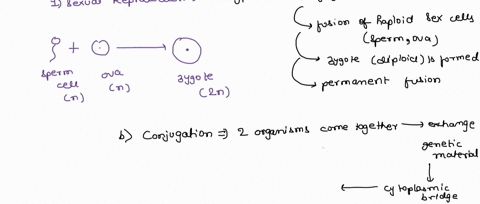 1) Sexual
fusion of haploid sex cells
(sperm, ova)
zygote (diploid) is formed
permanent fusion
+
sperm
cell
(n)
ova
(n)
zygote
(2n)
b) Conjugation ⇒ 2 organisms come together → exchange
genetic
material
↓
← cytoplasmic
bridge